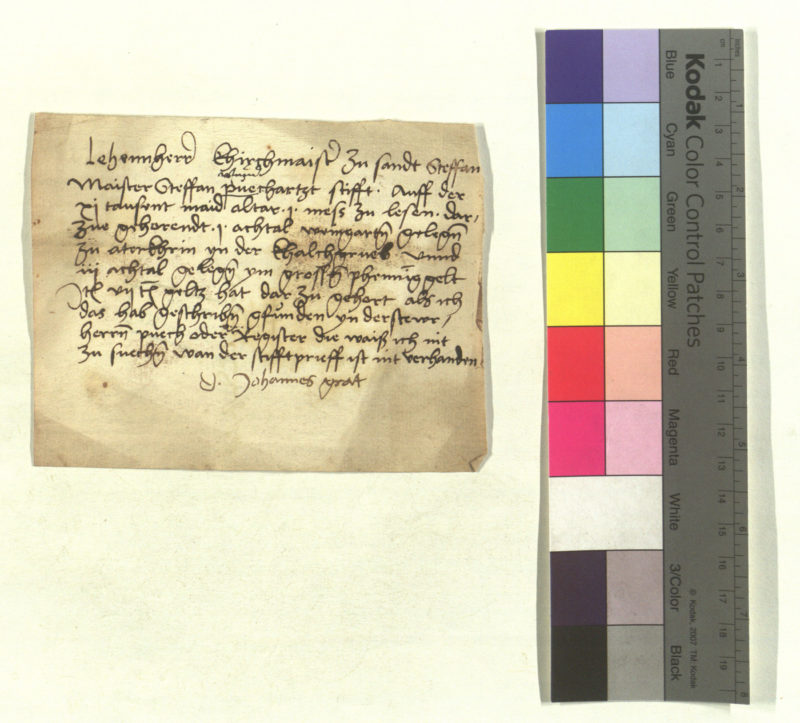 Lehennherr Khirchmaister zu sandt Steffan
Maister Steffan puechartzt stifft. Auff der
xj tausent maid altar .j. mess zu lesen. dar,
zue geherendt .j. achtal weingartn gelegn
zu aterkhrin yn der Khalchgrueb vnnd
iij achtal gelegn ym grossen phenniggelt
Itm vij tl geltz hat dar zu gehort als ich
das hab geschribn gfunden yn der stewr,
herrn puech oder Register die waiß ich nit
zu suechn wan der stifftprieff ist nit verhanden.
d. Johannes grat
Kodak Color Control Patches
Blue
Cyan
Green
Yellow
Red
Magenta
White
3/Color
Black
© Kodak, 2007 TM: Kodak
cm 1 2 3 4 5 6 7 8 9 10 11 12 13 14 15 16 17 18 19
inches 1 2 3 4 5 6 7 8